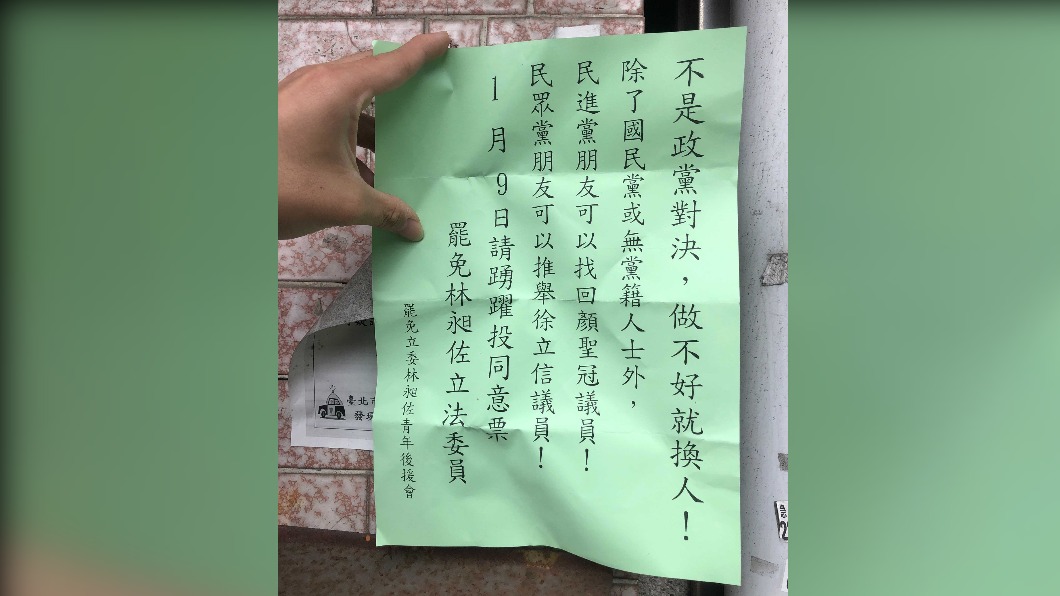 不是政黨對決，做不好就換人！
除了國民黨或無黨籍人士外，
民進黨朋友可以找回顏聖冠議員！
民眾黨朋友可以推舉徐立信議員！
1月9日請踴躍投同意票
罷免林昶佐立法委員
罷免立委林昶佐青年後援會
臺北市